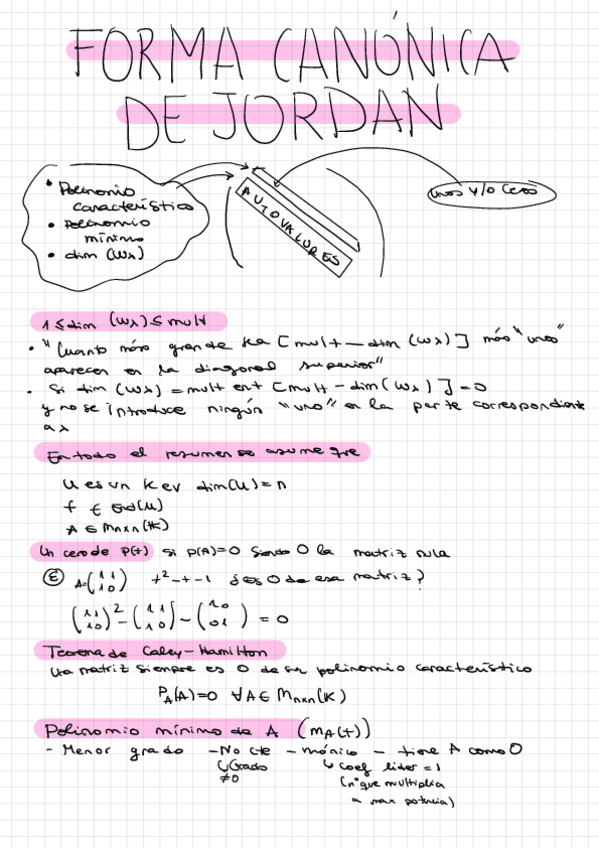 FORMA CANÓNICA
DE JORDAN
• Polinomio
característico
• polinomio
mínimo
• dim (Wλ)
AUTOVALORES
unos y/o ceros
1 ≤ dim (Wλ) ≤ mult
• "Cuanto más grande sea [mult - dim (Wλ)] más "unos"
aparecen en la diagonal superior"
• Si dim (Wλ) = mult ent [mult - dim(Wλ)] = 0
y no se introduce ningún "uno" en la parte correspondiente
a λ
En todo el resumen se asume que
U es un K ev dim(U) = n
f ∈ End(U)
A ∈ Mnxn(K)
Un cero de P(t) si p(A)=0 siendo 0 la matriz nula
A=(1 1 / 1 0) t²-t-1 ¿es 0 de esa matriz?
(1 1 / 1 0)² - (1 1 / 1 0) - (1 0 / 0 1) = 0
Teorema de Caley-Hamilton
Una matriz siempre es 0 de su polinomio característico
PA(A)=0 ∀A∈ Mnxn(K)
Polinomio mínimo de A (mA(t))
- Menor grado - No cte - mónico - tiene A como 0
↳ Grado ↳ coef lider = 1
≠0 (nº que multiplica
a max potencia)